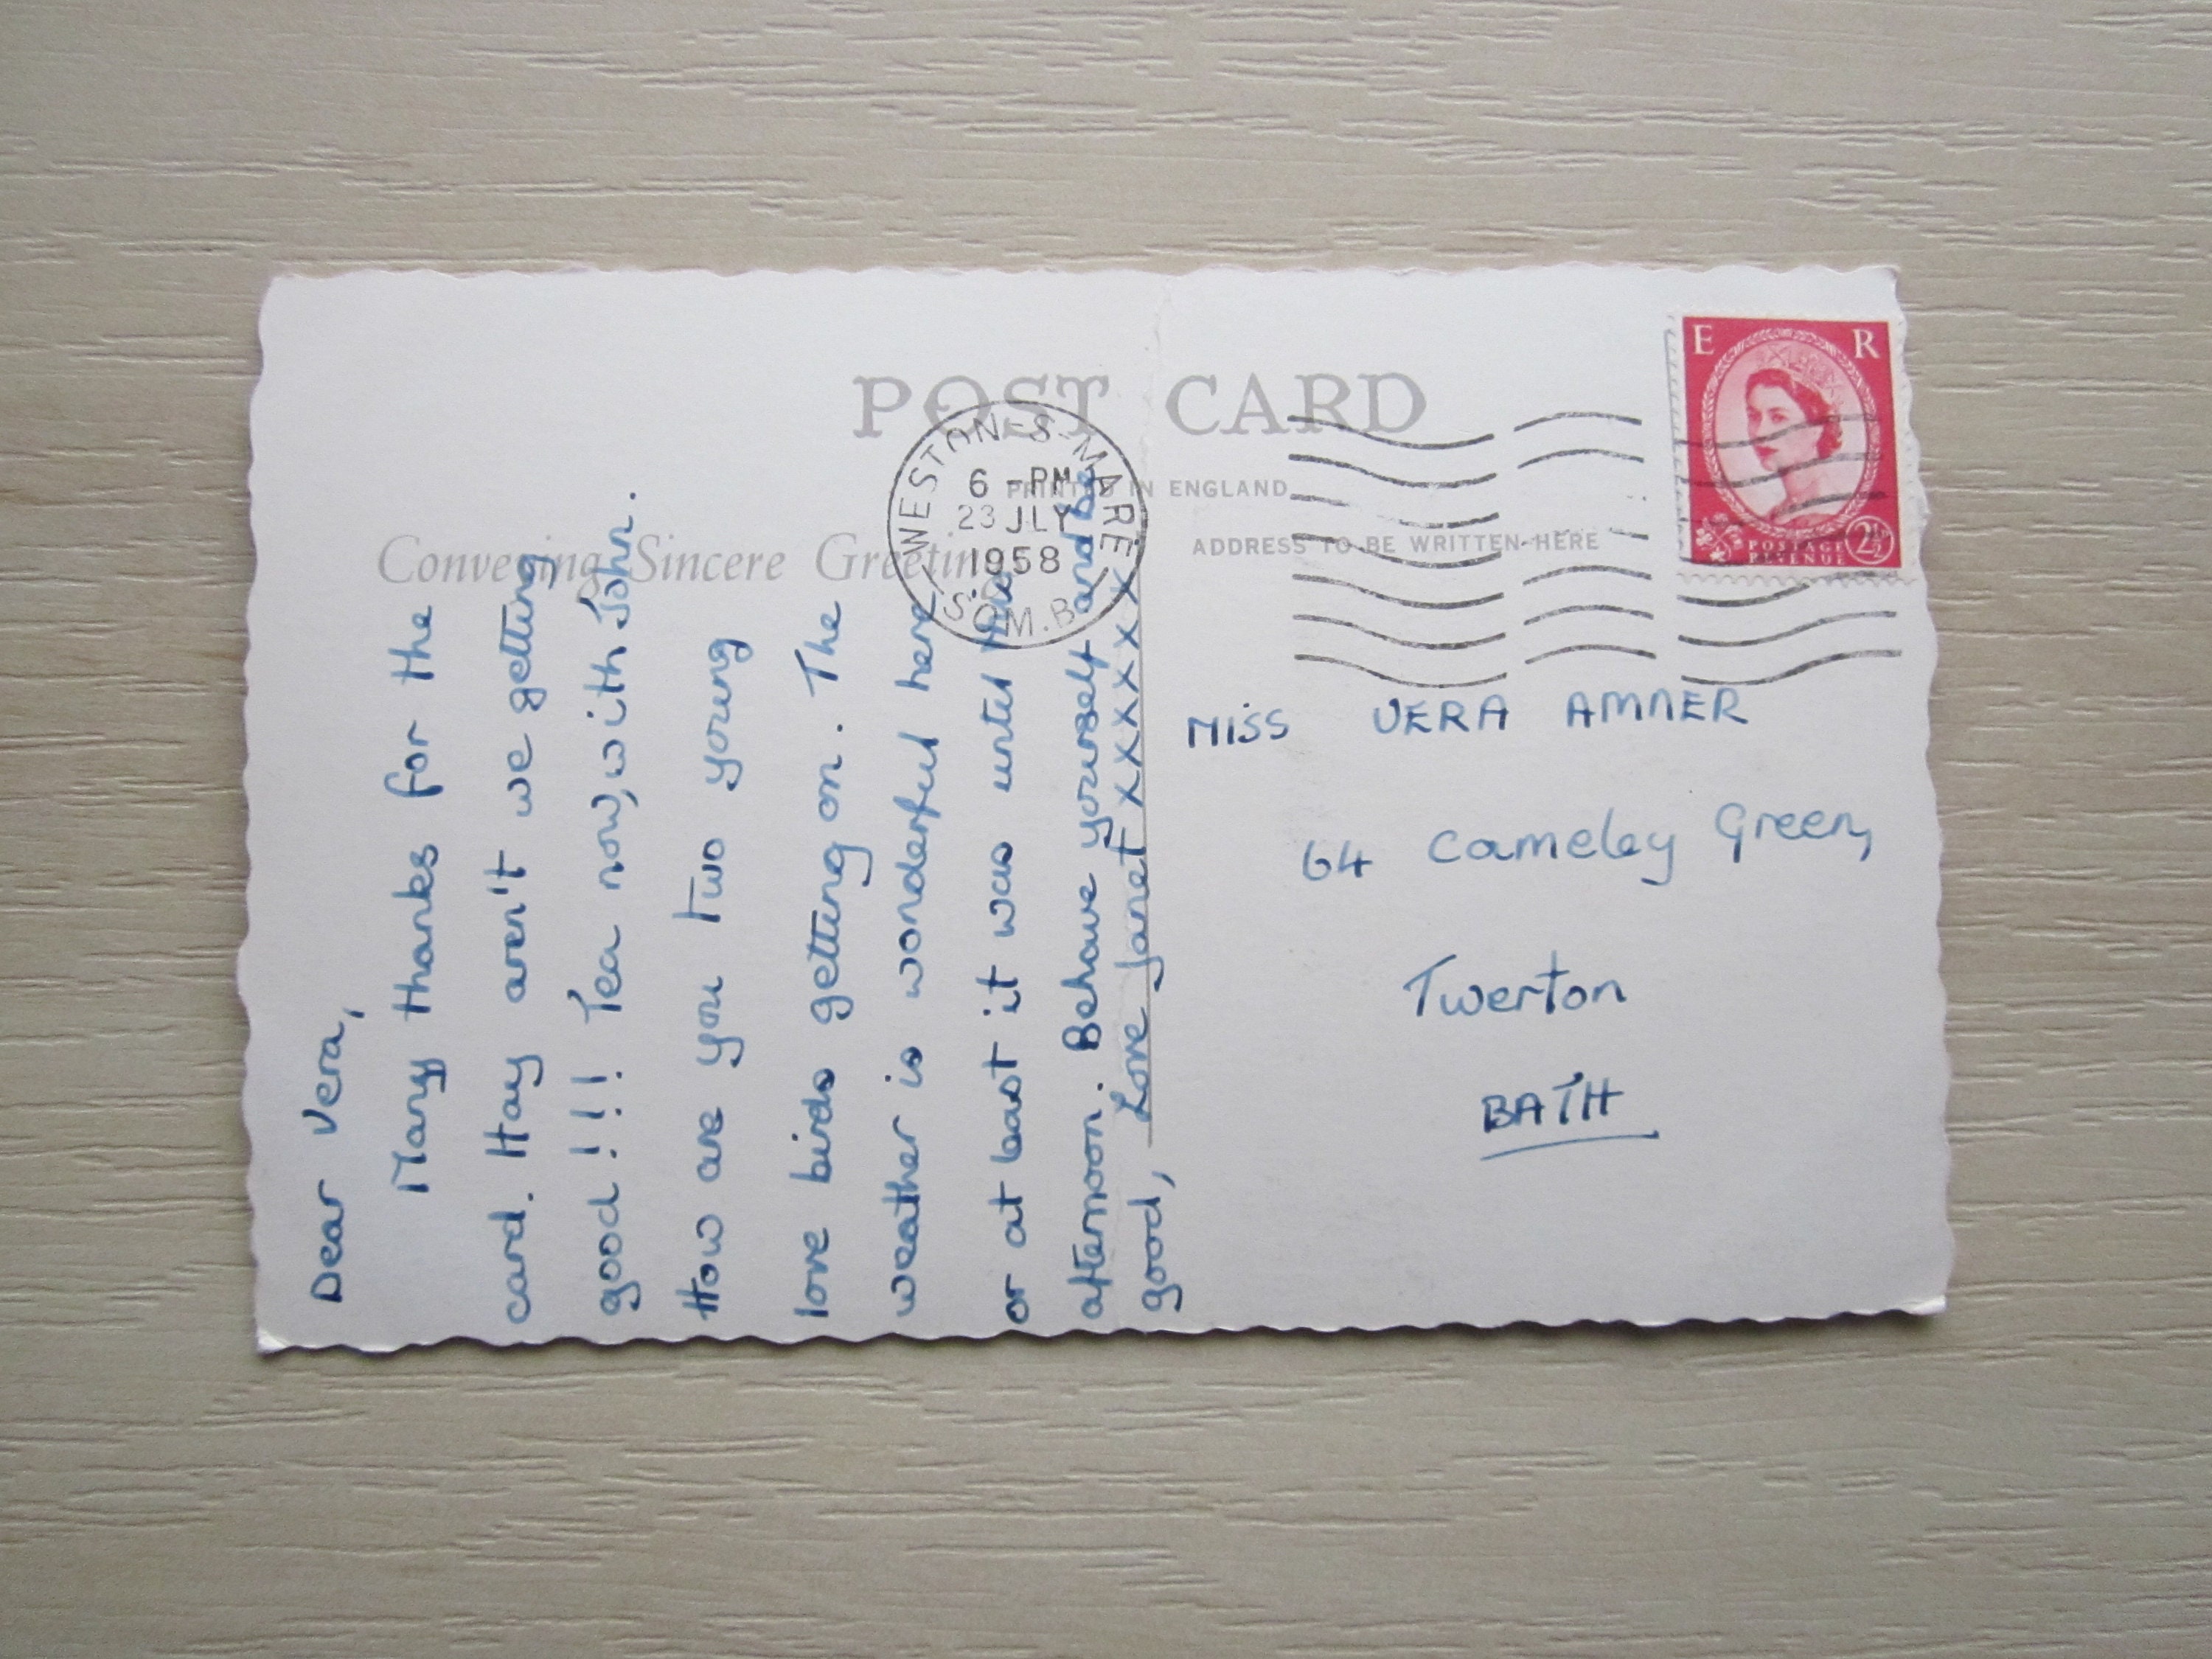 POST CARD
PRINTED IN ENGLAND
Conveying Sincere Greetings
ADDRESS TO BE WRITTEN HERE
WESTON-S-MARE
6 - PM
23 JLY
1958
SOM. B
E R
POSTAGE
REVENUE
2½
Dear Vera,
Many thanks for the
card. Hay aren't we getting
good !!!! Tea now, with John.
How are you two young
love birds getting on. The
weather is wonderful here
or at least it was until this
afternoon. Behave yourself and be
good, Love Janet xxxxxxx
MISS VERA AMNER
64 Cameley Green,
Twerton
BATH